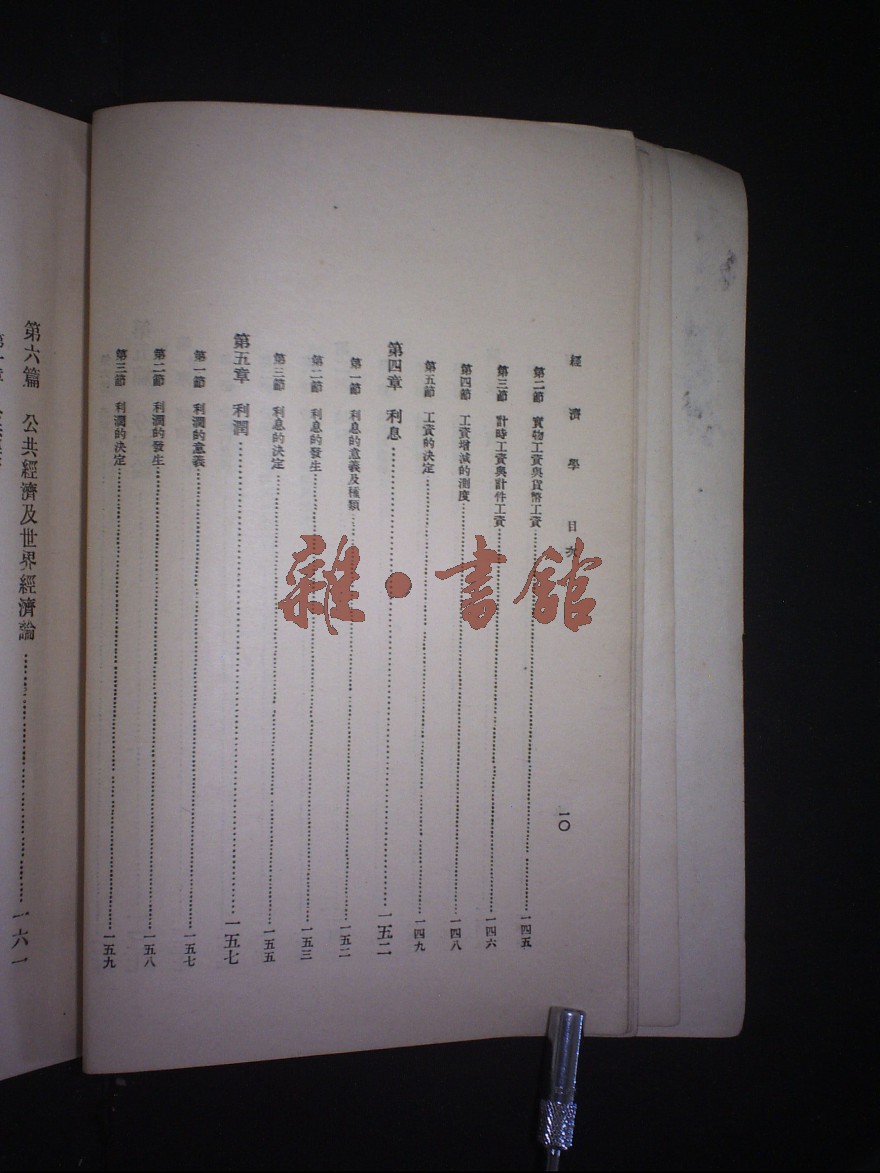 經濟學 目次
一〇
第二節 實物工資與貨幣工資……一四五
第三節 計時工資與計件工資……一四六
第四節 工資增減的測度……一四八
第五節 工資的決定……一四九
第四章 利息……一五二
第一節 利息的意義及種類……一五二
第二節 利息的發生……一五三
第三節 利息的決定……一五五
第五章 利潤……一五七
第一節 利潤的意義……一五七
第二節 利潤的發生……一五八
第三節 利潤的決定……一五九
第六篇 公共經濟及世界經濟論……一六一
雜·書館